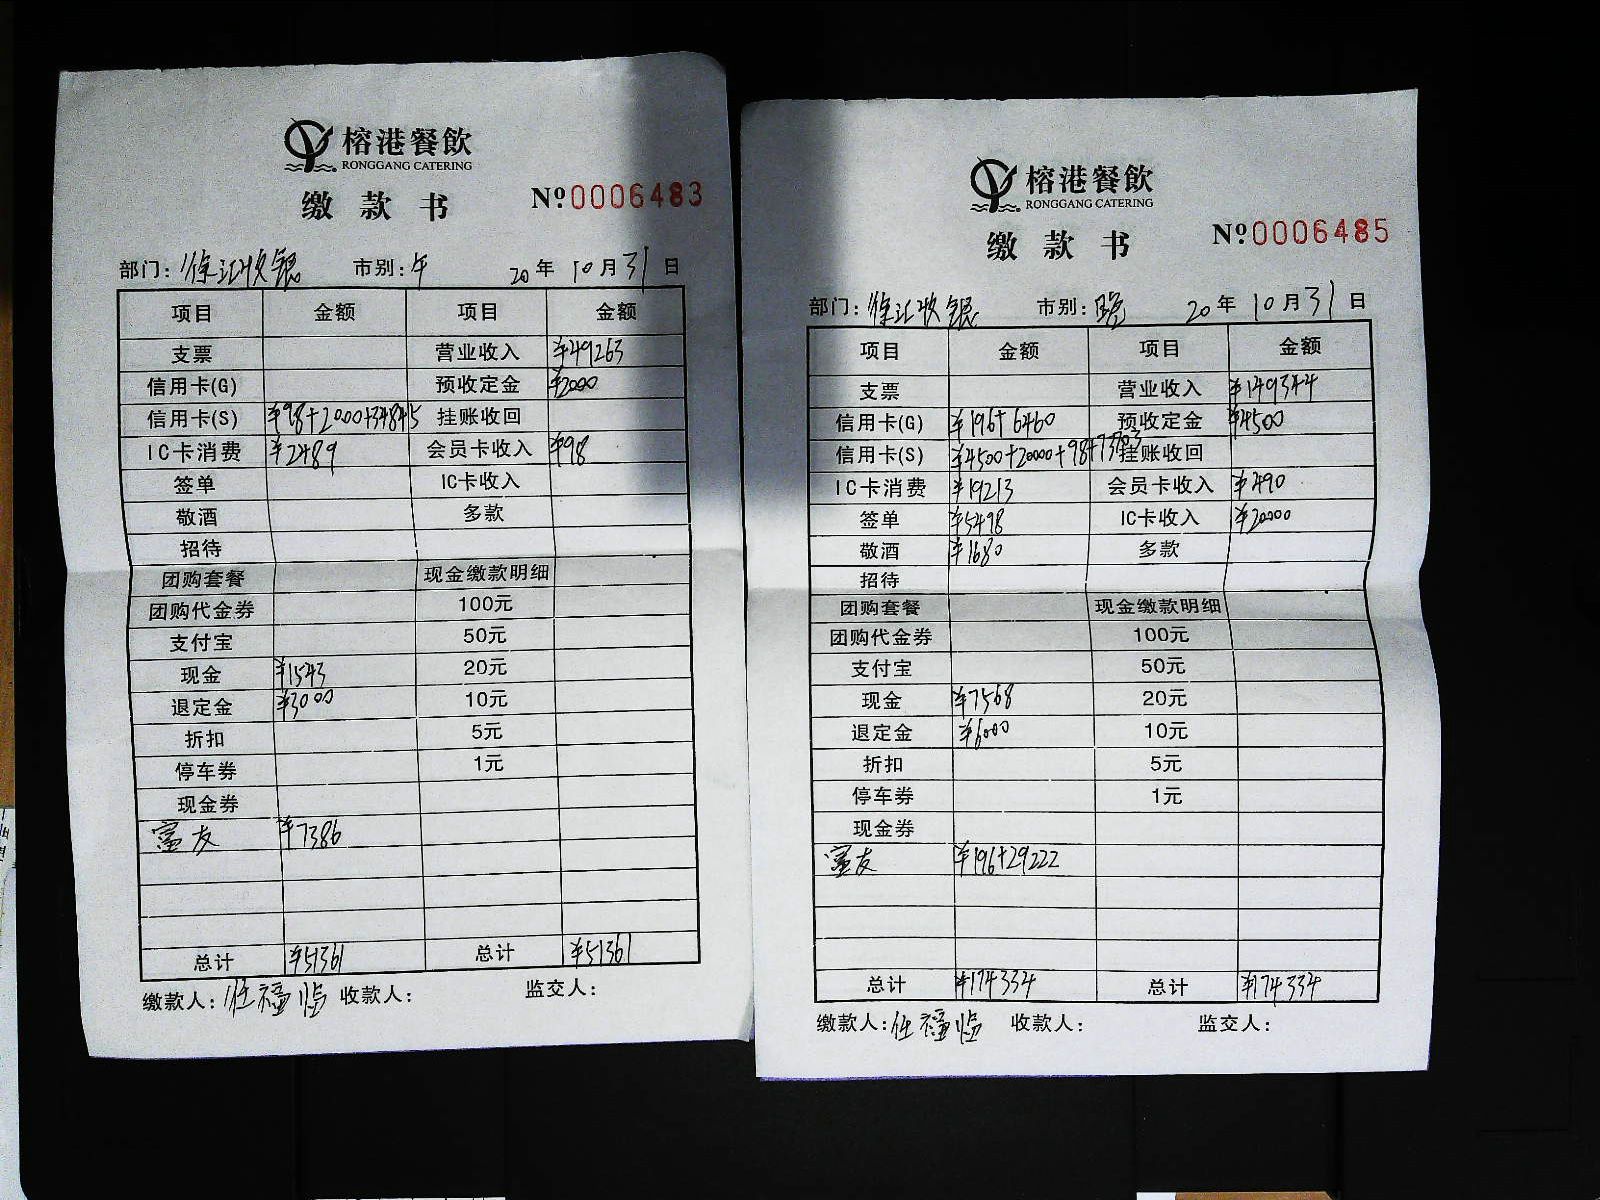 榕港餐飲
RONGGANG CATERING
缴款书 Nº 0006483
部门: 徐汇收银 市别: 午 20年10月31日
项目 金额 项目 金额
支票 营业收入 ¥49263
信用卡(G) 预收定金 ¥2000
信用卡(S) ¥98+2000+34845 挂账收回
IC卡消费 ¥2489 会员卡收入 ¥98
签单 IC卡收入
敬酒 多款
招待
团购套餐 现金缴款明细
团购代金券 100元
支付宝 50元
现金 ¥1543 20元
退定金 ¥3000 10元
折扣 5元
停车券 1元
现金券
富友 ¥7386
总计 ¥51361 总计 ¥51361
缴款人: 任福临 收款人: 监交人:
榕港餐飲
RONGGANG CATERING
缴款书 Nº 0006485
部门: 徐汇收银 市别: 晚 20年10月31日
项目 金额 项目 金额
支票 营业收入 ¥149344
信用卡(G) ¥196+6460 预收定金 ¥4500
信用卡(S) ¥4500+20000+98+73703 挂账收回
IC卡消费 ¥19213 会员卡收入 ¥490
签单 ¥5498 IC卡收入 ¥20000
敬酒 ¥1680 多款
招待
团购套餐 现金缴款明细
团购代金券 100元
支付宝 50元
现金 ¥7568 20元
退定金 ¥6000 10元
折扣 5元
停车券 1元
现金券
富友 ¥196+29222
总计 ¥174334 总计 ¥174334
缴款人: 任福临 收款人: 监交人: